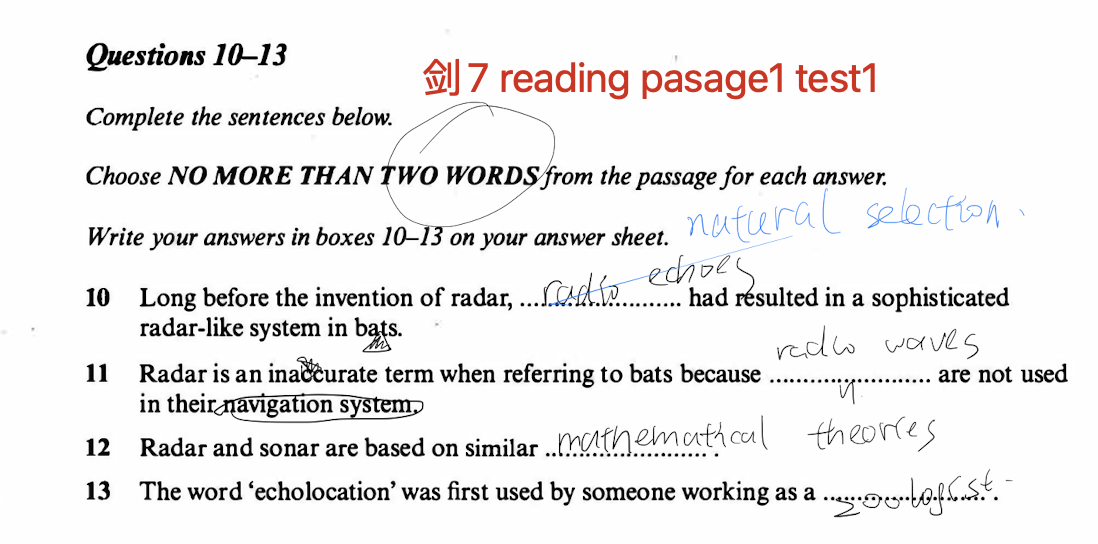 Questions 10–13
剑7 reading pasage1 test1
Complete the sentences below.
Choose NO MORE THAN TWO WORDS from the passage for each answer.
natural selection.
Write your answers in boxes 10–13 on your answer sheet.
radio echoes
10 Long before the invention of radar, .................... had resulted in a sophisticated
radar-like system in bats.
radio waves
11 Radar is an inaccurate term when referring to bats because .................... are not used
in their navigation system.
12 Radar and sonar are based on similar mathematical theories.
13 The word ‘echolocation’ was first used by someone working as a zoologist.